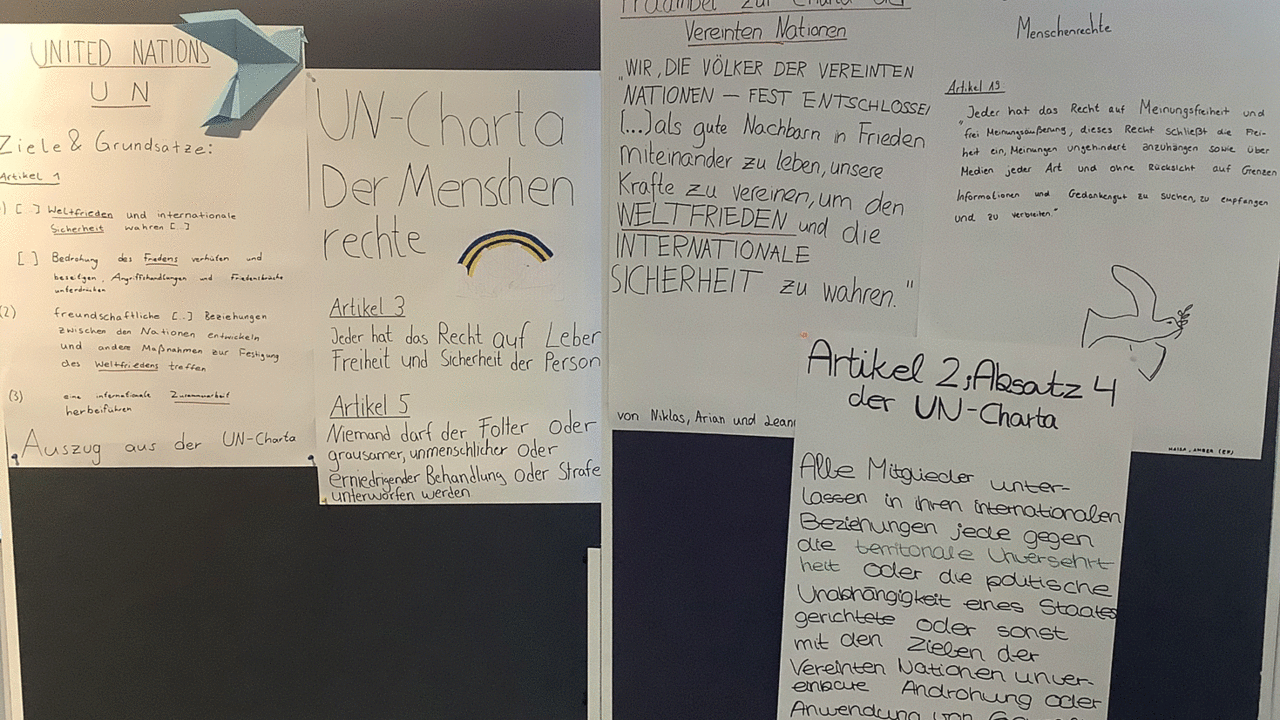 UNITED NATIONS
UN
Ziele & Grundsätze:
Artikel 1
) [..] Weltfrieden und internationale
Sicherheit wahren [..]
[ ] Bedrohung des Friedens verhüten und
beseitigen, Angriffshandlungen und Friedensbrüche
unterdrücken
(2) freundschaftliche [..] Beziehungen
zwischen den Nationen entwickeln
und andere Maßnahmen zur Festigung
des Weltfriedens treffen
(3) eine internationale Zusammenarbeit
herbeiführen
Auszug aus der UN-Charta
UN-Charta
Der Menschen
rechte
Artikel 3
Jeder hat das Recht auf Leben
Freiheit und Sicherheit der Person
Artikel 5
Niemand darf der Folter Oder
grausamer, unmenschlicher Oder
erniedrigender Behandlung Oder Strafe
unterworfen werden
Präambel zur Charta der
Vereinten Nationen
„WIR, DIE VÖLKER DER VEREINTEN
NATIONEN – FEST ENTSCHLOSSE
[...] als gute Nachbarn in Frieden
miteinander zu leben, unsere
Kräfte zu vereinen, um den
WELTFRIEDEN und die
INTERNATIONALE
SICHERHEIT zu wahren."
von Niklas, Arian und Leann
Menschenrechte
Artikel 19
„Jeder hat das Recht auf Meinungsfreiheit und
frei Meinungsäußerung, dieses Recht schließt die Frei-
heit ein, Meinungen ungehindert anzuhängen sowie über
Medien jeder Art und ohne Rücksicht auf Grenzen
Informationen und Gedankengut zu suchen, zu empfangen
und zu verbreiten."
Artikel 2, Absatz 4
der UN-Charta
Alle Mitglieder unter-
lassen in ihren internationalen
Beziehungen jede gegen
die territoriale Unversehrt
heit oder die politische
Unabhängigkeit eines Staates
gerichtete oder sonst
mit den Zielen der
Vereinten Nationen unver-
einbare Androhung oder
Anwendung von